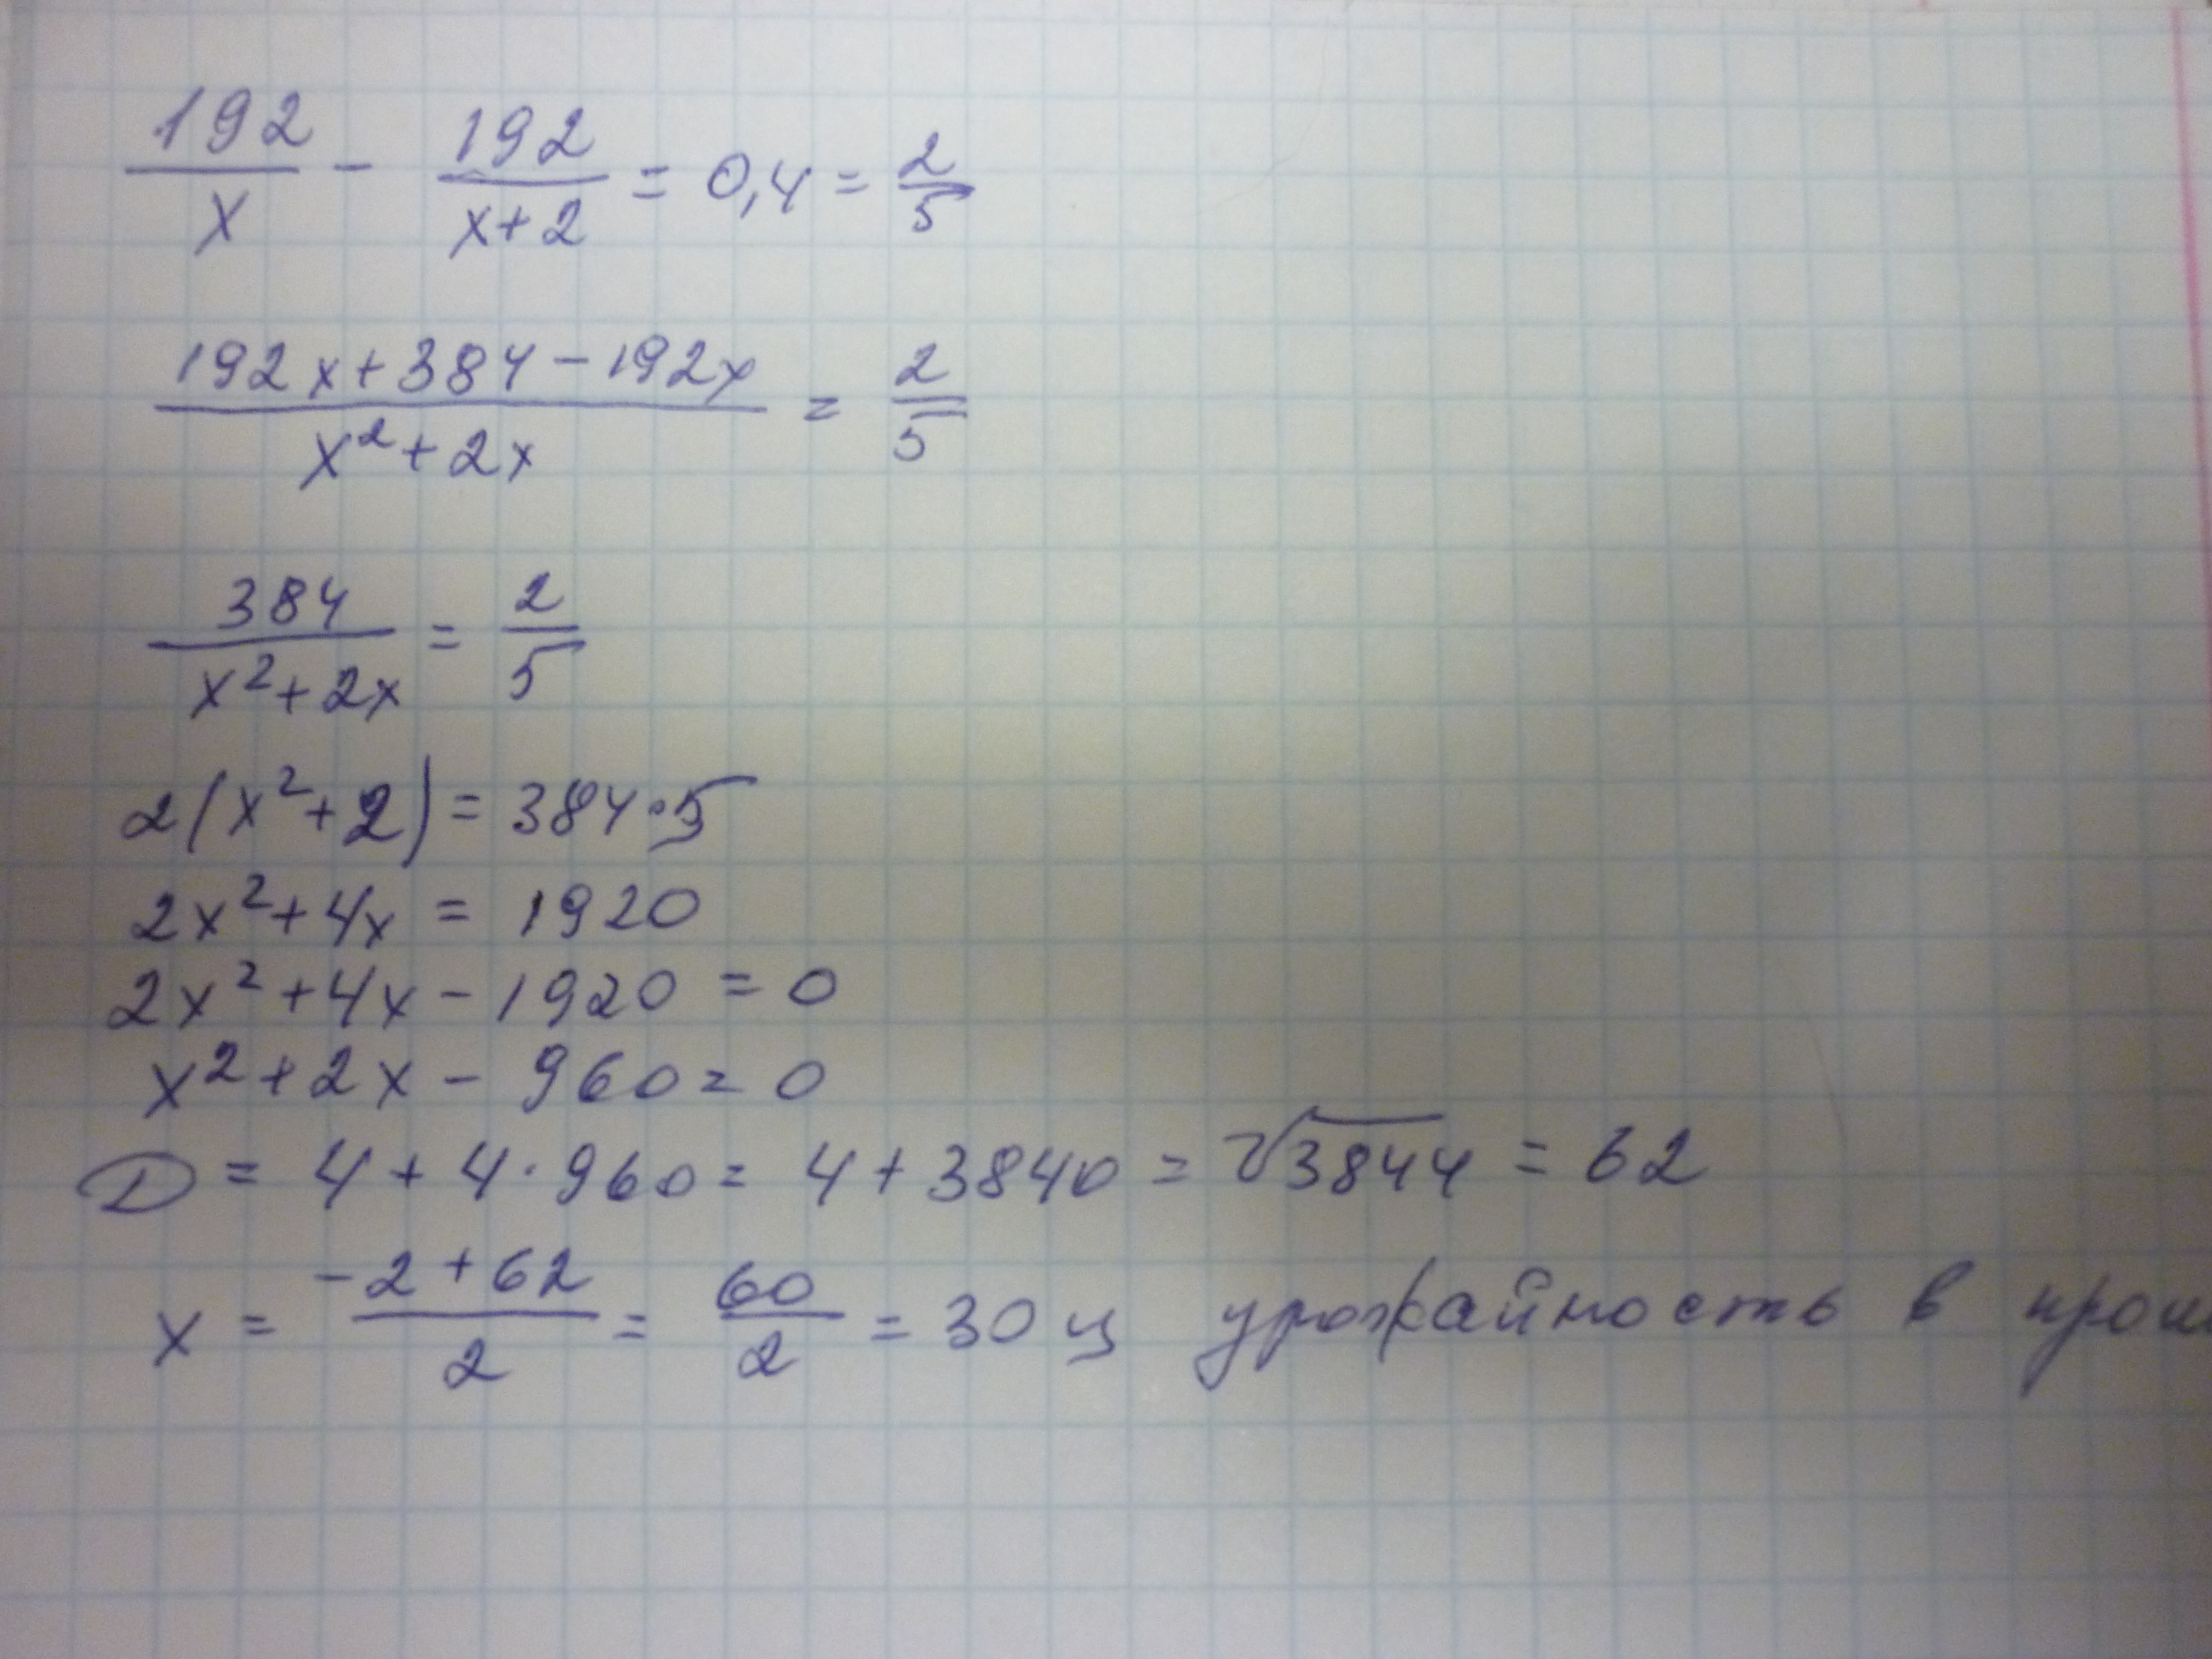 192/x - 192/x+2 = 0,4 = 2/5
192x+384-192x / x²+2x = 2/5
384 / x²+2x = 2/5
2(x²+2) = 384·5
2x²+4x = 1920
2x²+4x-1920 = 0
x²+2x-960=0
D = 4+4·960= 4+3840 = √3844 = 62
x = -2+62 / 2 = 60/2 = 30 ц урожайность в прош